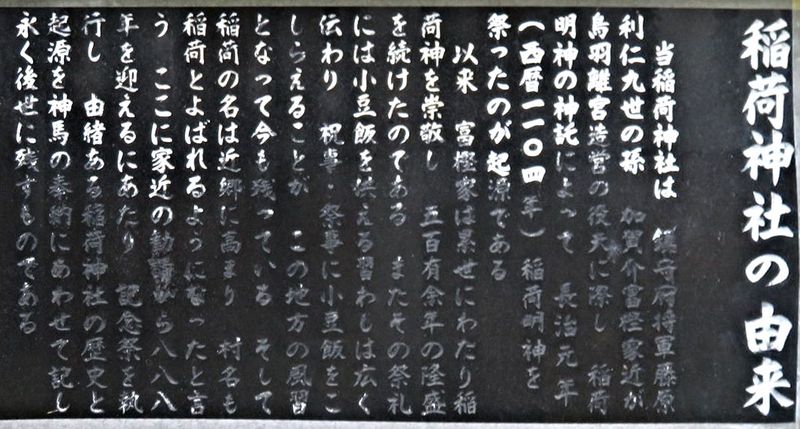 稲荷神社の由来
当稲荷神社は 鎮守府将軍藤原
利仁九世の孫 加賀介富樫家近が
鳥羽離宮造営の役夫に際し 稲荷
明神の神託によって 長治元年
(西暦一一〇四年)稲荷明神を
祭ったのが起源である
以来 富樫家は累世にわたり稲
荷神を崇敬し 五百有余年の隆盛
を続けたのである またその祭礼
には小豆飯を供える習わしは広く
伝わり 祝事・祭事に小豆飯をこ
しらえることが この地方の風習
となって今も残っている そして
稲荷の名は近郷に高まり 村名も
稲荷とよばれるようになったと言
う ここに家近の勧請から八八八
年を迎えるにあたり 記念祭を執
行し 由緒ある稲荷神社の歴史と
起源を神馬の奉納にあわせて記し
永く後世に残すものである